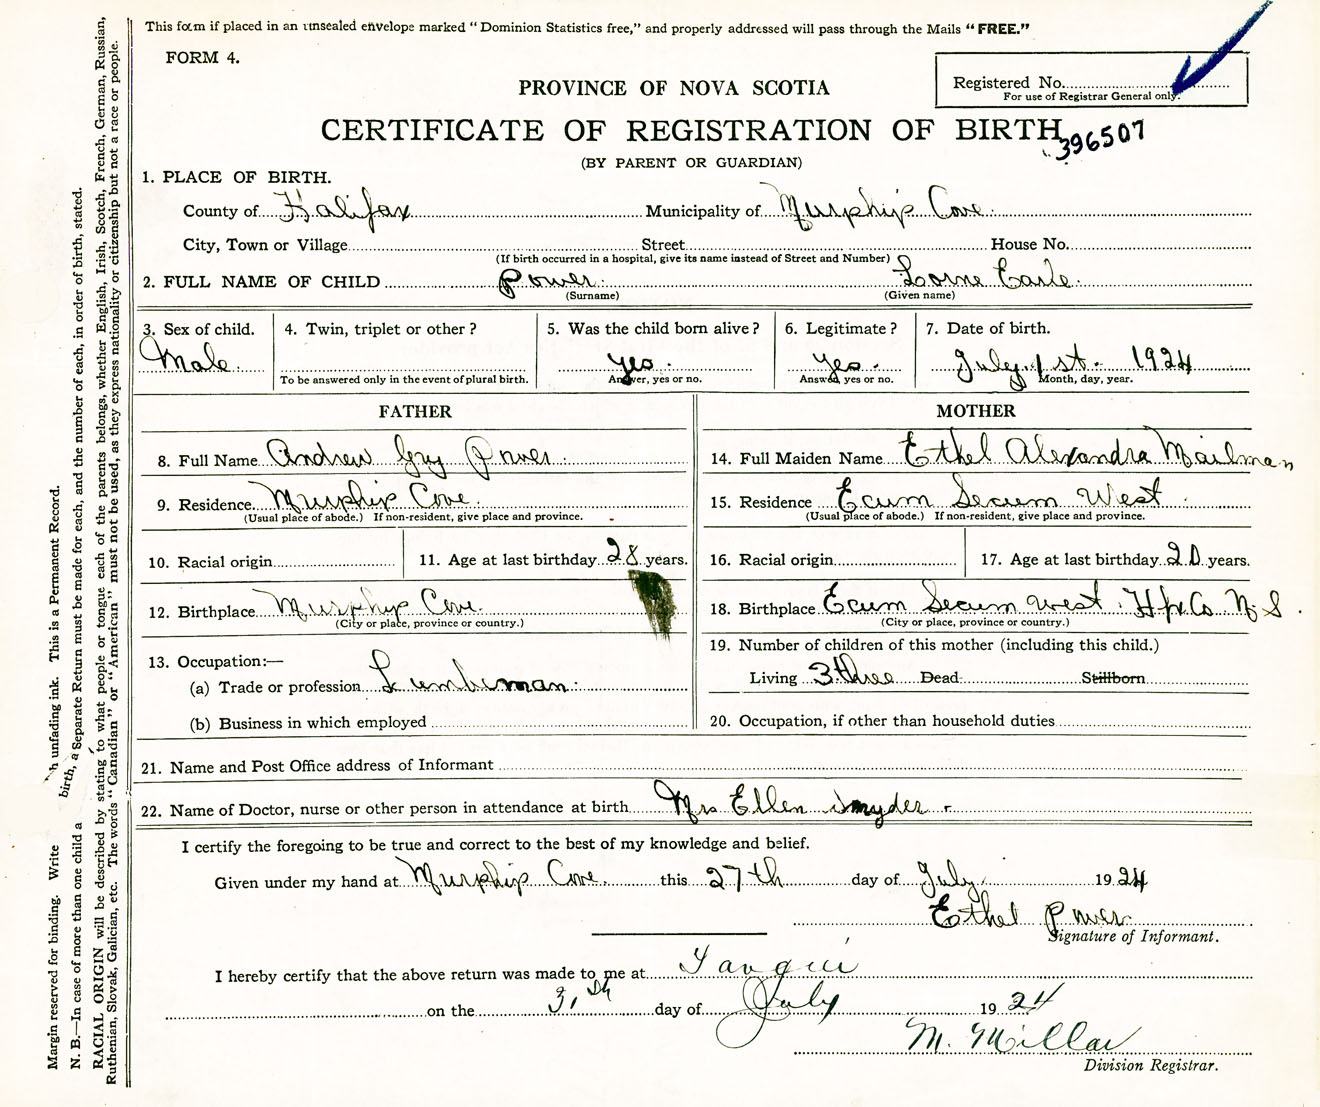 This form if placed in an unsealed envelope marked "Dominion Statistics free," and properly addressed will pass through the Mails "FREE."
FORM 4.
Registered No.
For use of Registrar General only.
PROVINCE OF NOVA SCOTIA
CERTIFICATE OF REGISTRATION OF BIRTH
396507
(BY PARENT OR GUARDIAN)
1. PLACE OF BIRTH.
County of Halifax Municipality of Murphip Cove
City, Town or Village Street House No.
(If birth occurred in a hospital, give its name instead of Street and Number)
2. FULL NAME OF CHILD Power Lorne Earle
(Surname) (Given name)
3. Sex of child. 4. Twin, triplet or other? 5. Was the child born alive? 6. Legitimate? 7. Date of birth.
Male yes yes July 1st. 1924
To be answered only in the event of plural birth. Answer, yes or no. Answer, yes or no. Month, day, year.
FATHER MOTHER
8. Full Name Andrew Guy Power 14. Full Maiden Name Ethel Alexandra Mailman
9. Residence Murphip Cove. 15. Residence Ecum Secum West
(Usual place of abode.) If non-resident, give place and province. (Usual place of abode.) If non-resident, give place and province.
10. Racial origin 11. Age at last birthday 28 years. 16. Racial origin 17. Age at last birthday 20 years.
12. Birthplace Murphip Cove. 18. Birthplace Ecum Secum West. Hfx Co. N.S.
(City or place, province or country.) (City or place, province or country.)
13. Occupation:— 19. Number of children of this mother (including this child.)
(a) Trade or profession Lumberman. Living 3 three Dead Stillborn
(b) Business in which employed 20. Occupation, if other than household duties
21. Name and Post Office address of Informant
22. Name of Doctor, nurse or other person in attendance at birth Mrs Ellen Snyder
I certify the foregoing to be true and correct to the best of my knowledge and belief.
Given under my hand at Murphip Cove. this 27th day of July 1924
Ethel Power
Signature of Informant.
I hereby certify that the above return was made to me at Tangier
on the 31st day of July 1924
M. Millar
Division Registrar.
Margin reserved for binding. Write unfading ink. This is a Permanent Record.
N. B.—In case of more than one child a birth, a Separate Return must be made for each, and the number of each, in order of birth, stated.
RACIAL ORIGIN will be described by stating to what people or tongue each of the parents belongs, whether English, Irish, Scotch, French, German, Russian,
Ruthenian, Slovak, Galician, etc. The words "Canadian" or "American" must not be used, as they express nationality or citizenship but not a race or people.